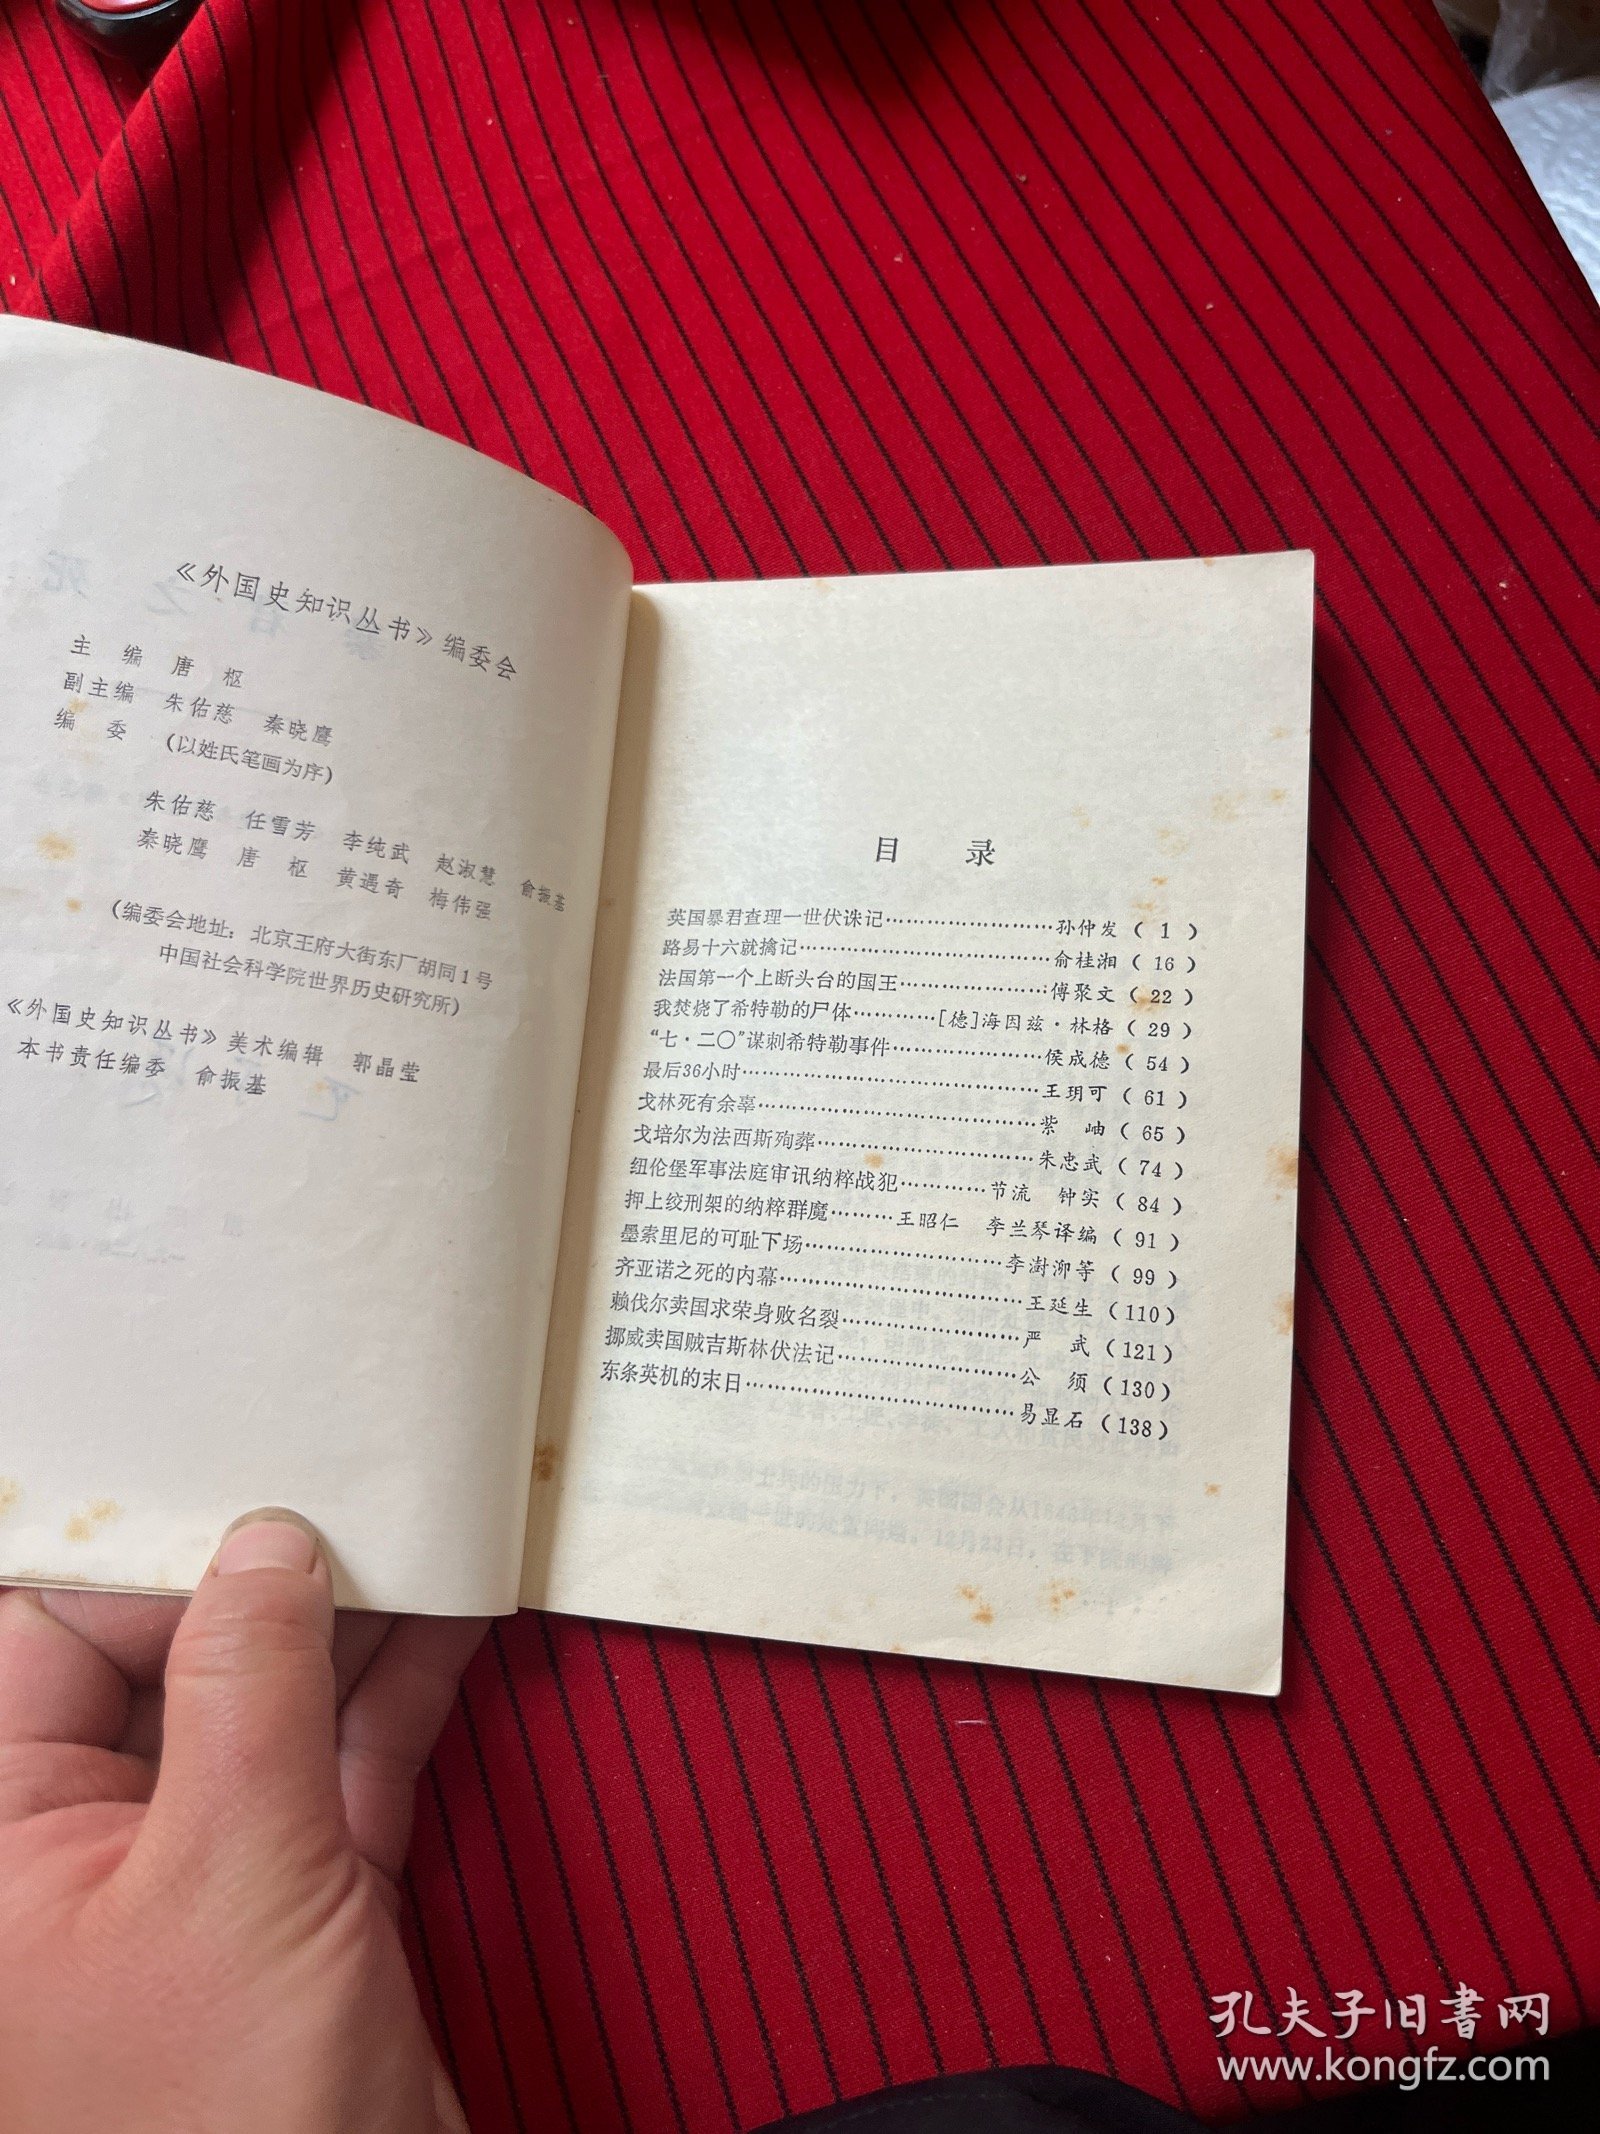 《外国史知识丛书》编委会
主　编　唐　枢
副主编　朱佑慈　秦晓鹰
编　委　（以姓氏笔画为序）
朱佑慈　任雪芳　李纯武　赵淑慧　俞振基
秦晓鹰　唐　枢　黄遇奇　梅伟强
（编委会地址：北京王府大街东厂胡同1号
中国社会科学院世界历史研究所）
《外国史知识丛书》美术编辑　郭晶莹
本书责任编委　俞振基
目　录
英国暴君查理一世伏诛记…………………孙仲发（ 1 ）
路易十六就擒记…………………………俞桂湘（ 16 ）
法国第一个上断头台的国王………………傅聚文（ 22 ）
我焚烧了希特勒的尸体…………[德]海因兹·林格（ 29 ）
“七·二〇”谋刺希特勒事件………………侯成德（ 54 ）
最后36小时………………………………王玥可（ 61 ）
戈林死有余辜……………………………紫　岫（ 65 ）
戈培尔为法西斯殉葬……………………朱忠武（ 74 ）
纽伦堡军事法庭审讯纳粹战犯…………节流　钟实（ 84 ）
押上绞刑架的纳粹群魔………王昭仁　李兰琴译编（ 91 ）
墨索里尼的可耻下场……………………李澍泖等（ 99 ）
齐亚诺之死的内幕………………………王延生（110）
赖伐尔卖国求荣身败名裂…………………严　武（121）
挪威卖国贼吉斯林伏法记…………………公　须（130）
东条英机的末日…………………………易显石（138）
孔夫子旧书网
www.kongfz.com